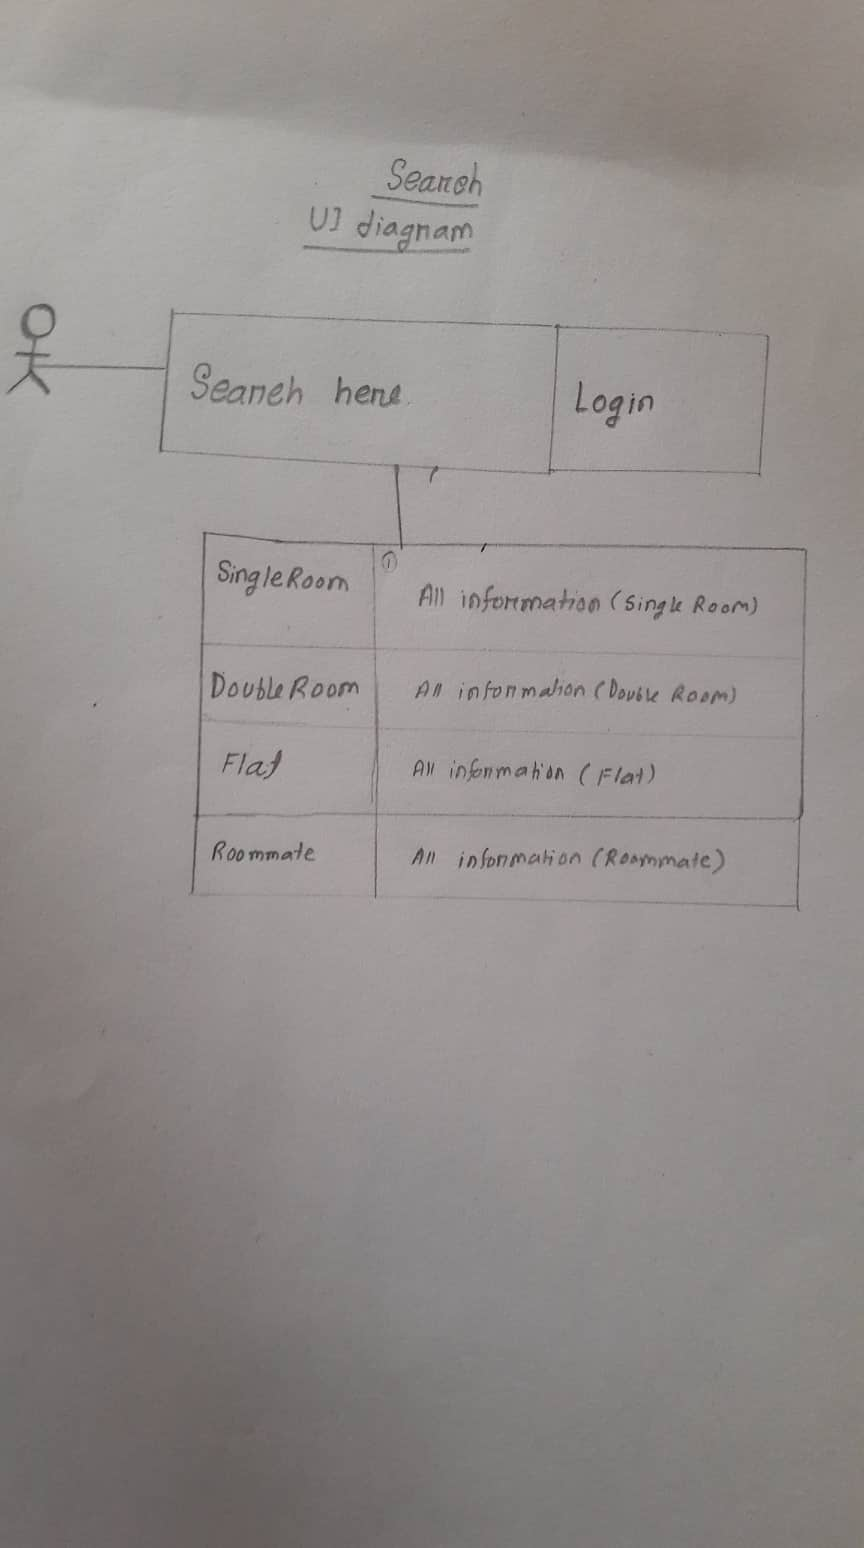 Search
UI diagram
Search here.
Login
Single Room
① All information (Single Room)
Double Room
All information (Double Room)
Flat
All information (Flat)
Roommate
All information (Roommate)